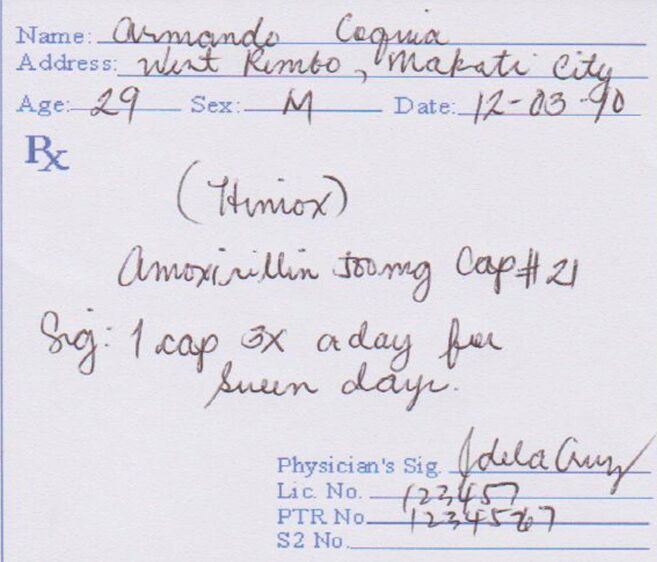 Name: Armando Coquia
Address: West Rembo, Makati City
Age: 29 Sex: M Date: 12-03-90
Rx
(Himox)
Amoxicillin 500mg Cap # 21
Sig: 1 cap 3x a day for
seven days.
Physician's Sig. J dela Cruz
Lic. No. 123457
PTR No. 1234567
S2 No.